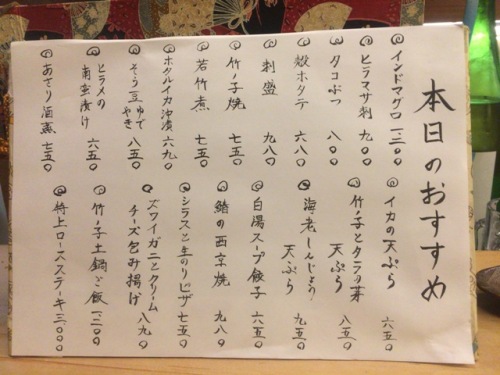 本日のおすすめ
インドマグロ 一二〇〇
ヒラマサ刺 九〇〇
タコぶつ 八〇〇
殻ホタテ 六八〇
刺盛 九八〇
竹ノ子焼 七五〇
若竹煮 七五〇
ホタルイカ沖漬 六九〇
そら豆 ゆで やき 八五〇
ヒラメの南蛮漬け 六五〇
あさり酒蒸 七五〇
イカの天ぷら 六五〇
竹ノ子とタラの芽
天ぷら 八五〇
海老しんじょうの
天ぷら 九五〇
白湯スープ餃子 六五〇
鰆の西京焼 九八〇
シラスと生のりピザ 七五〇
ズワイガニとクリーム
チーズ包み揚げ 八九〇
竹ノ子土鍋ご飯 一二〇〇
特上ロースステーキ 三〇〇〇